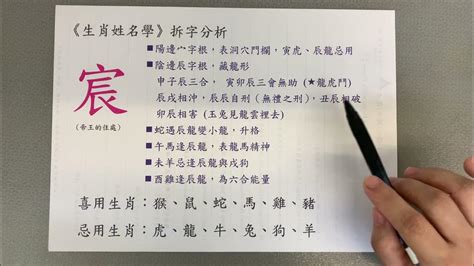 《生肖姓名學》拆字分析
宸
(帝王的住處)
■陽邊宀字根，表洞穴門欄，寅虎、辰龍忌用
■陰邊辰字根，藏龍形
申子辰三合， 寅卯辰三會無助 (★龍虎鬥)
辰戌相沖，辰辰自刑（無禮之刑），丑辰相破
卯辰相害 (玉兔見龍雲裡去)
■蛇遇辰龍變小龍，升格
■午馬逢辰龍，表龍馬精神
■未羊忌逢辰龍與戌狗
■酉雞逢辰龍，為六合能量
喜用生肖：猴、鼠、蛇、馬、雞、豬
忌用生肖：虎、龍、牛、兔、狗、羊